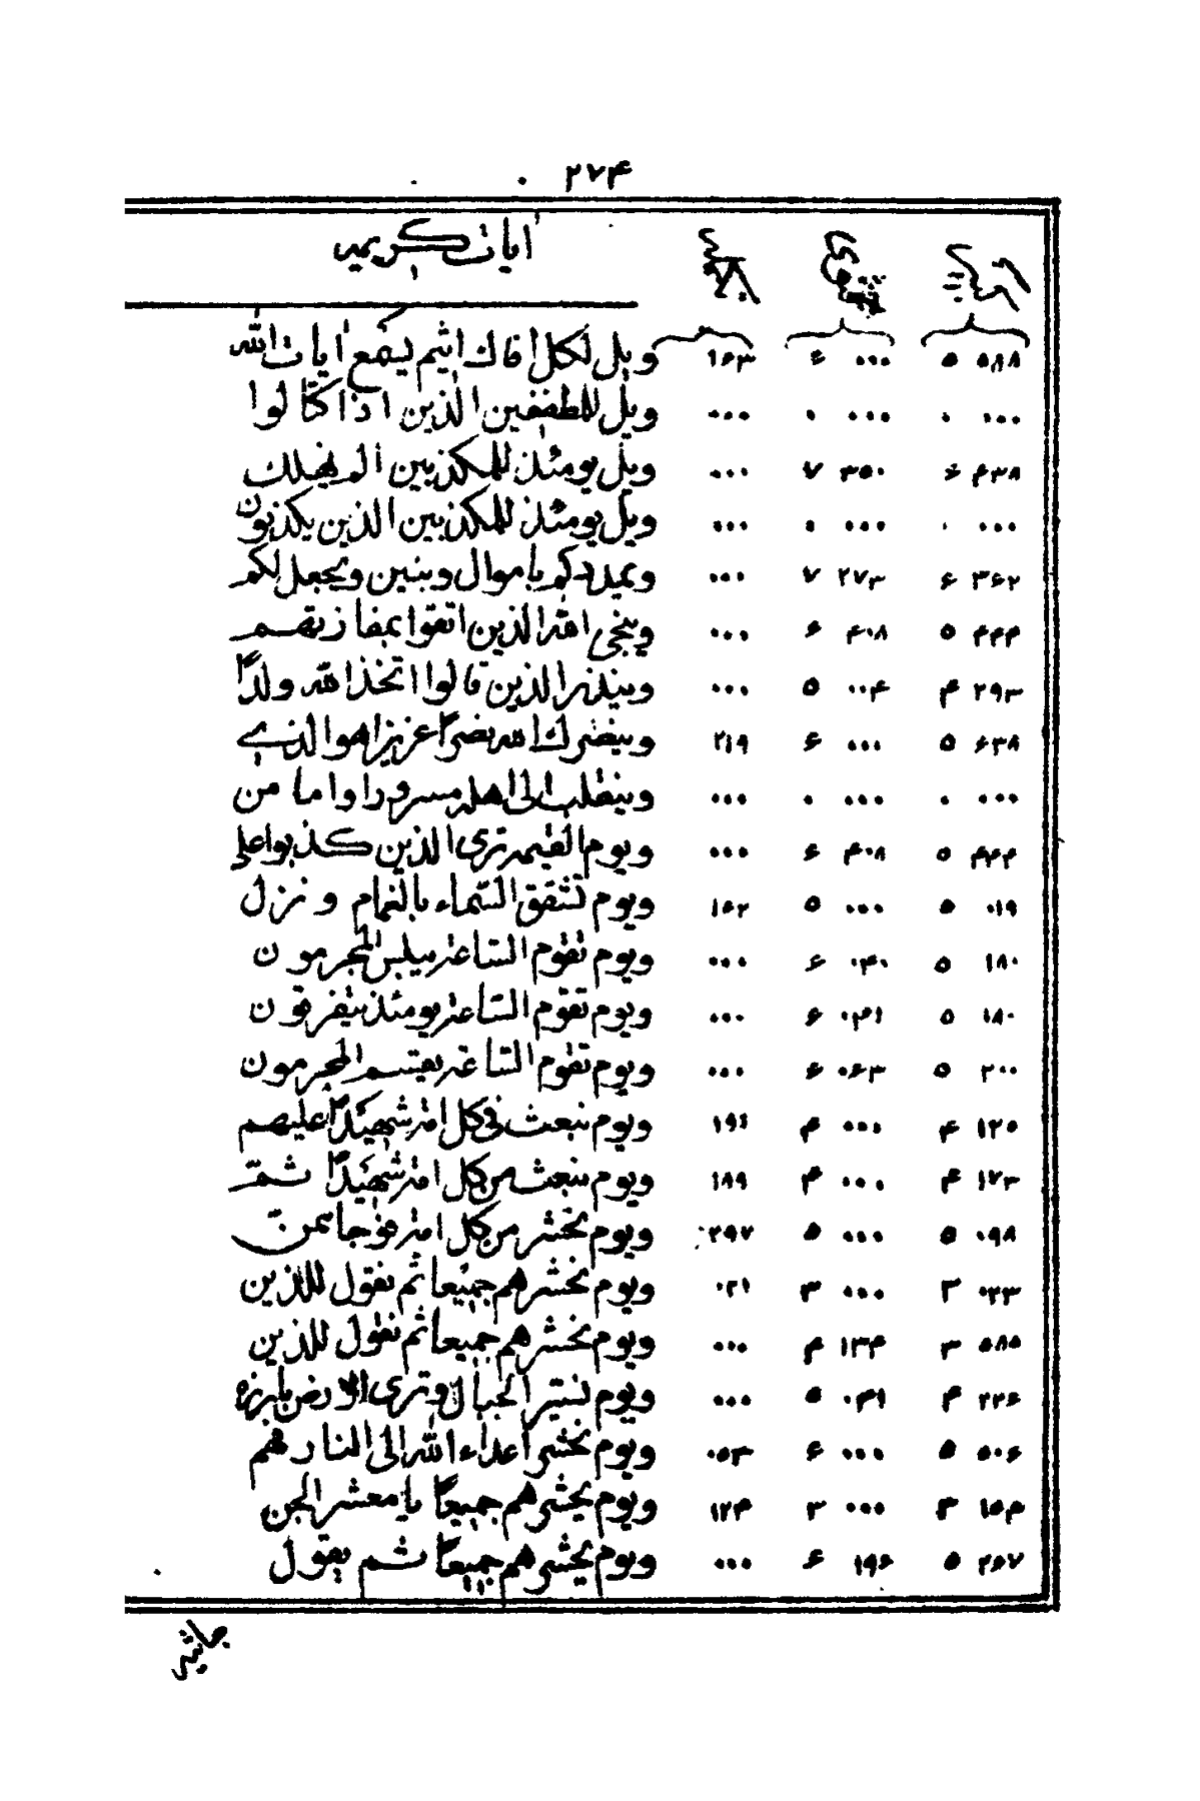 ۲۷۴
ايات كريمه
۵۸۸ ۵ ۰۰۰ ۶ ۱۶۳ ويل لكل افاك اثيم يسمع ايات الله
۰۰۰ ۰ ۰۰۰ ۰ ۰۰۰ ويل للمطففين الذين اذا كتالوا
۶۳۸ ۶ ۳۵۰ ۷ ۰۰۰ ويل يومئذ للمكذبين الم نهلك
۰۰۰ ۰ ۰۰۰ ۰ ۰۰۰ ويل يومئذ للمكذبين الذين يكذبون
۳۶۲ ۶ ۲۷۳ ۷ ۰۰۰ ويمددكم باموال وبنين ويجعل لكم
۴۴۴ ۵ ۴۰۸ ۶ ۰۰۰ وينجى الله الذين اتقوا بمفازتهم
۲۹۳ ۴ ۰۰۴ ۵ ۰۰۰ وينذر الذين قالوا اتخذ الله ولدًا
۶۳۸ ۵ ۰۰۰ ۶ ۲۱۹ وينصرك الله نصرًا عزيزا هوا لذي
۰۰۰ ۰ ۰۰۰ ۰ ۰۰۰ وينقلب الى اهله مسرورا واما من
۴۴۴ ۵ ۴۰۸ ۶ ۰۰۰ ويوم القيمه ترى الذين كذبوا على
۰۱۹ ۵ ۰۰۰ ۵ ۱۶۲ ويوم تشقق السماء بالغمام ونزل
۱۸۰ ۵ ۰۴۰ ۶ ۰۰۰ ويوم تقوم الساعة يبلس المجرمون
۱۸۰ ۵ ۰۴۱ ۶ ۰۰۰ ويوم تقوم الساعة يومئذ يتفرقون
۲۰۰ ۵ ۰۶۳ ۶ ۰۰۰ ويوم تقوم الساعة يقسم المجرمون
۱۲۵ ۴ ۰۰۰ ۴ ۱۹۶ ويوم نبعث فى كل امة شهيدًا عليهم
۱۷۳ ۴ ۰۰۰ ۴ ۱۸۹ ويوم نبعث من كل امة شهيدًا ثمّ
۰۹۸ ۵ ۰۰۰ ۵ ۲۹۷ ويوم نحشر من كل امة فوجا ممن
۰۲۳ ۳ ۰۰۰ ۳ ۰۲۱ ويوم نحشرهم جميعا ثم نقول للذين
۵۸۵ ۳ ۱۳۴ ۴ ۰۰۰ ويوم نحشرهم جميعا ثم نقول للذين
۲۲۶ ۴ ۰۴۱ ۵ ۰۰۰ ويوم نسير الجبال وترى الارض بارزة
۵۰۶ ۵ ۰۰۰ ۶ ۰۵۳ ويوم نحشر اعداء الله الى النار فهم
۱۵۴ ۳ ۰۰۰ ۳ ۱۲۴ ويوم يحشرهم جميعًا يامعشر الجن
۲۶۷ ۵ ۱۹۶ ۶ ۰۰۰ ويوم يحشرهم جميعًا ثم يقول